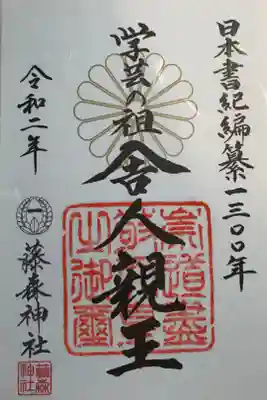 日本書紀編纂一三〇〇年
学芸の祖 舎人親王
令和二年
藤森神社
藤森神社